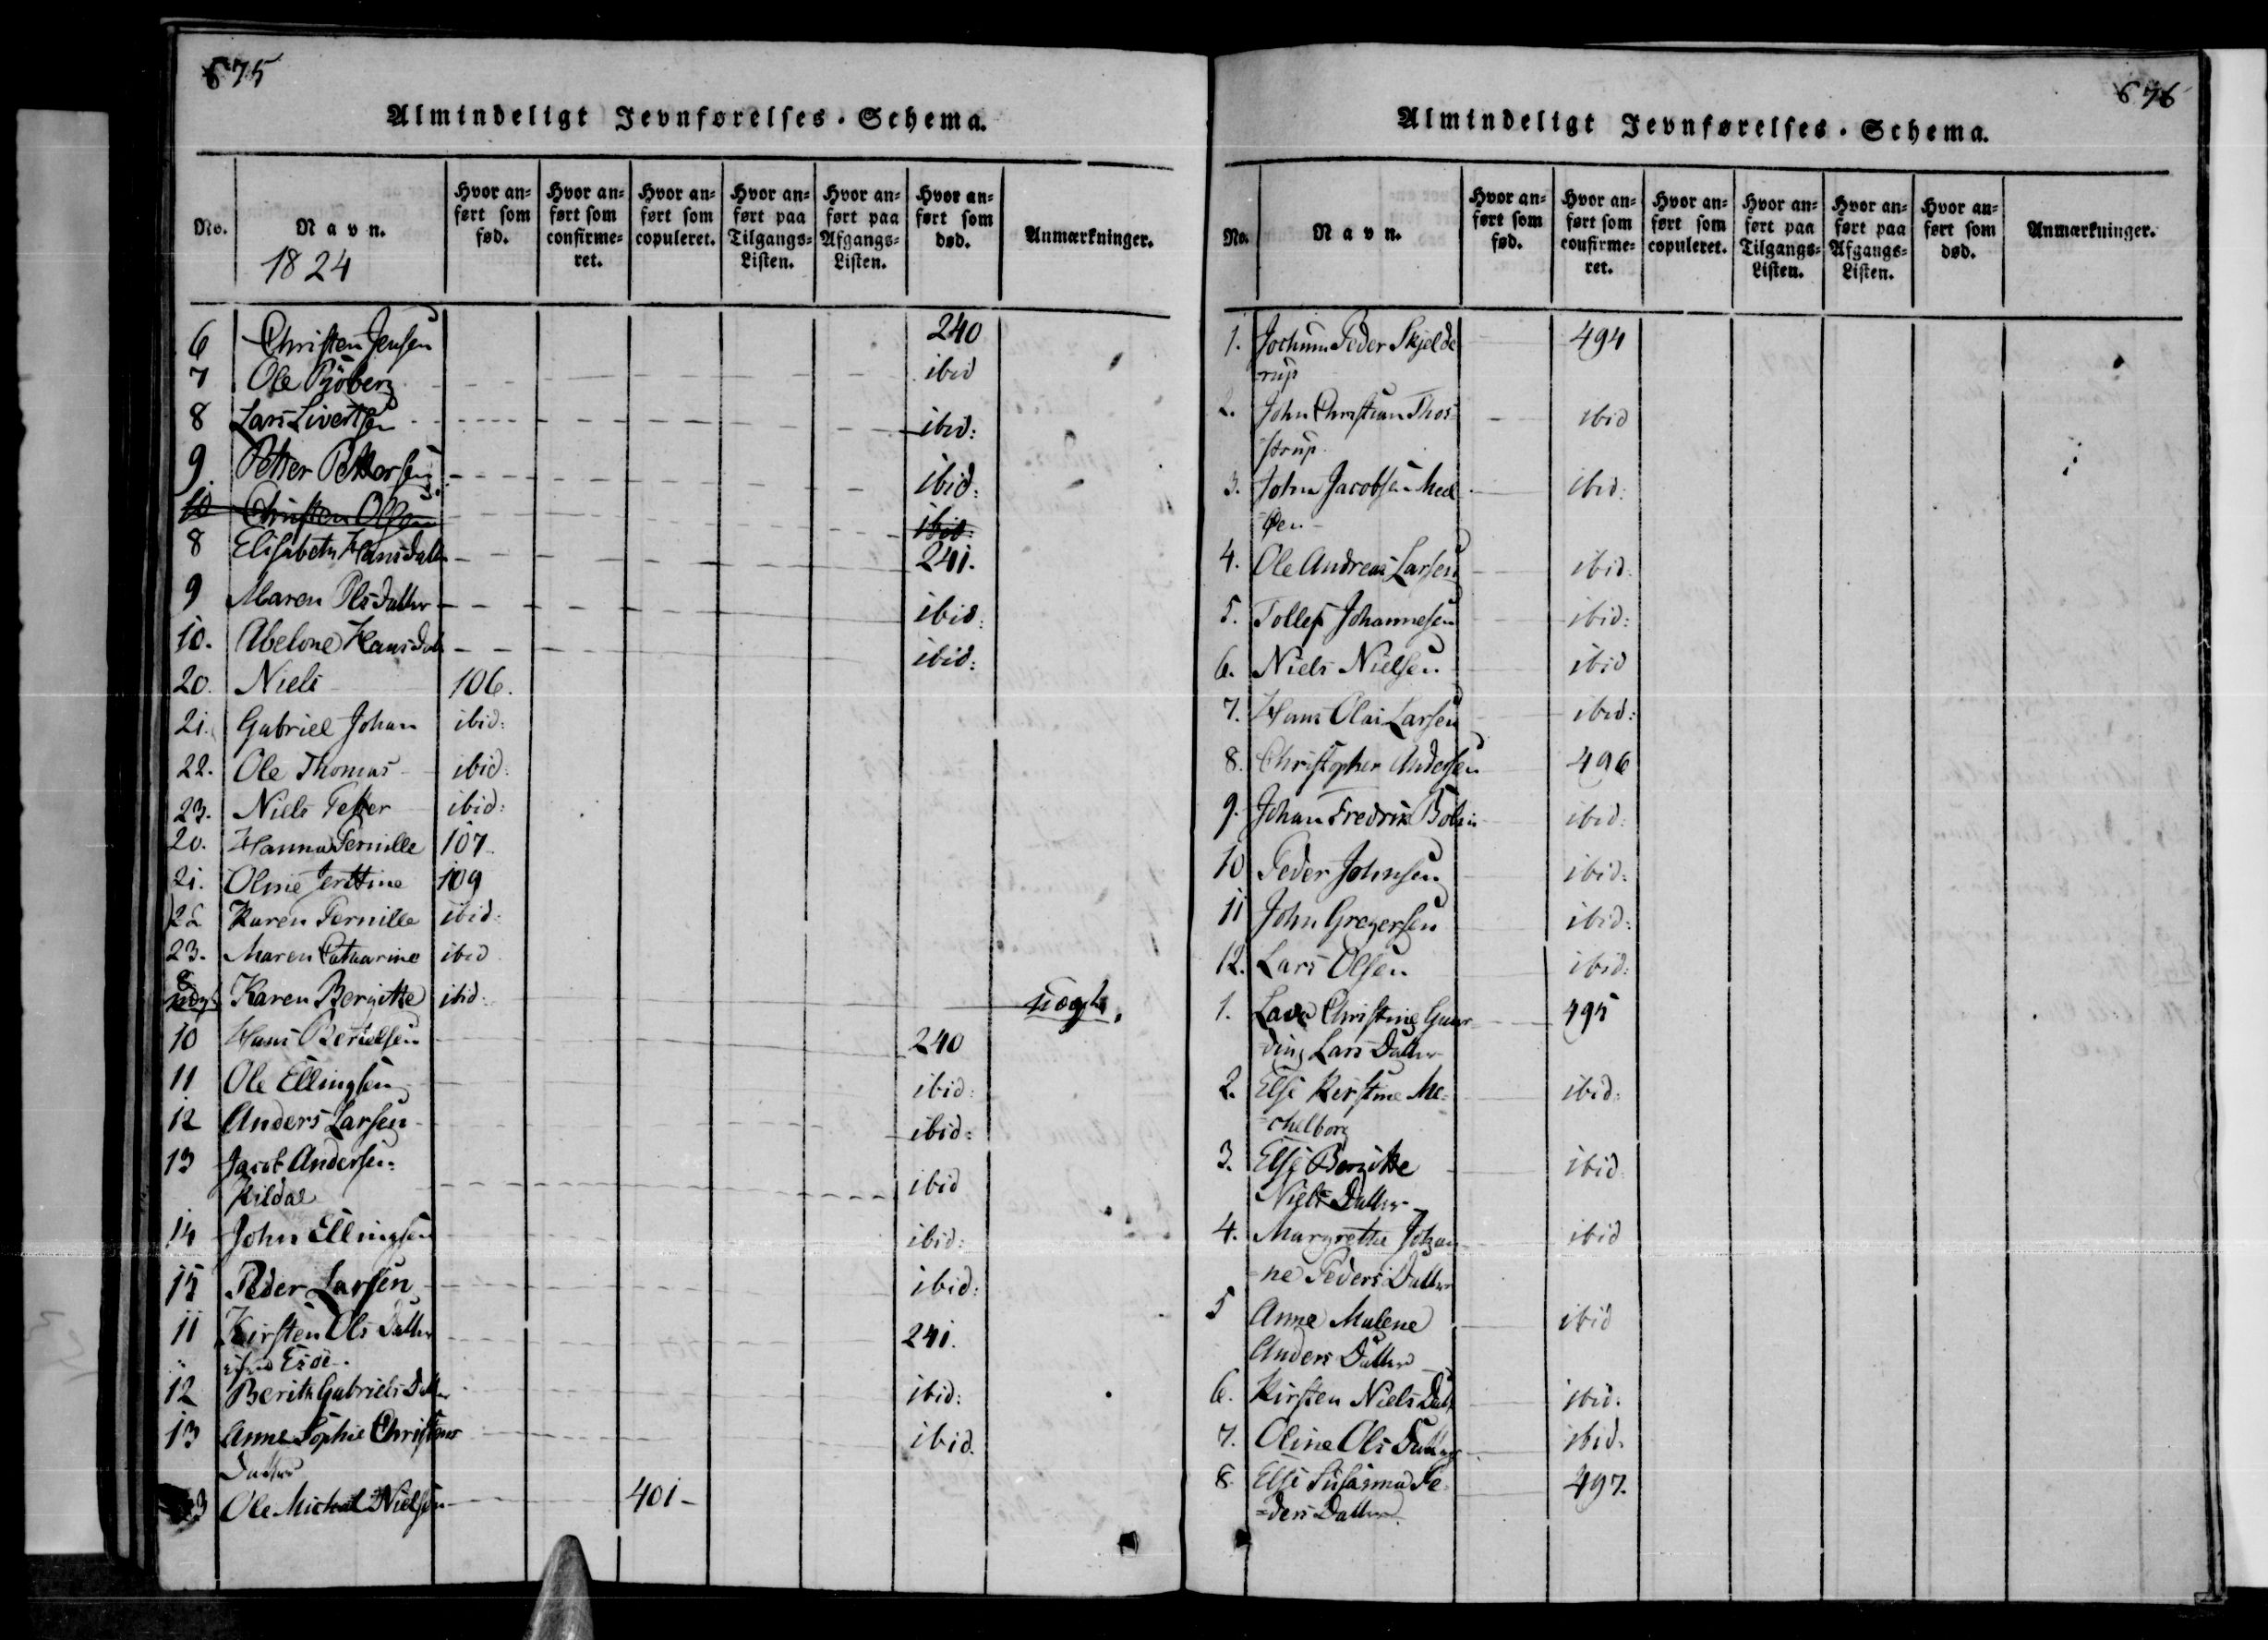 675
Almindeligt Jevnførelses-Schema.
No. Navn. Hvor anført som fød. Hvor anført som confirmeret. Hvor anført som copuleret. Hvor anført paa Tilgangs-Listen. Hvor anført paa Afgangs-Listen. Hvor anført som død. Anmærkninger.
1824
6 Christen Jensen 240
7 Ole Sjöberg ibid
8 Lars Sivertsen ibid:
9. Petter Pettersen ibid:
10 Christen Olsen ibid
8 Elisabeth Hansdatter 241.
9 Maren Olsdatter ibid:
10. Abelone Hansdatt ibid:
20. Niels 106.
21. Gabriel Johan ibid:
22. Ole Thomas ibid:
23. Niels Petter ibid:
20. Hanna Pernille 107
21. Oline Jerttine 109
22 Karen Pernille ibid:
23. Maren Catharine ibid
8 uægte Karen Bergitte ibid: uægte.
10 Hans Bertelsen 240
11 Ole Ellingsen ibid:
12 Anders Larsen ibid:
13 Jacob Andersen ibid
Kildal
14 John Ellingsen ibid:
15 Peder Larsen ibid:
11 Kirsten Ols Datter 241.
12 Berith Gabriels Datter ibid:
13 Anne Sophie Christens ibid.
Datter
23 Ole Michal Nielsen 401-
676
Almindeligt Jevnførelses-Schema.
No. Navn. Hvor anført som fød. Hvor anført som confirmeret. Hvor anført som copuleret. Hvor anført paa Tilgangs-Listen. Hvor anført paa Afgangs-Listen. Hvor anført som død. Anmærkninger.
1. Jochum Peder Skjelde 494
rup
2. John Christian Thos- ibid
strup.
3. John Jacobsen Med ibid:
-øen
4. Ole Andreas Larsen ibid:
5. Tollef Johannesen ibid:
6. Niels Nielsen ibid
7. Hans Olai Larsen ibid:
8. Christopher Andersen 496
9. Johan Fredrik ibid:
10 Peder Johnsen ibid:
11 John Gregersen ibid:
12. Lars Olsen ibid:
1. Christine 495
Lars Datter
2. Else Kirstine Me- ibid:
-chelborg
3. Else Bergitte ibid
Niels Datter
4. Margrethe Johan ibid
-ne Peders Datter
5 Anne Malene ibid
Anders Datter
6. Kirsten Niels Datt ibid.
7. Oline Ols Datter ibid.
8. Else Susanna Pe- 497.
-ders Datter.